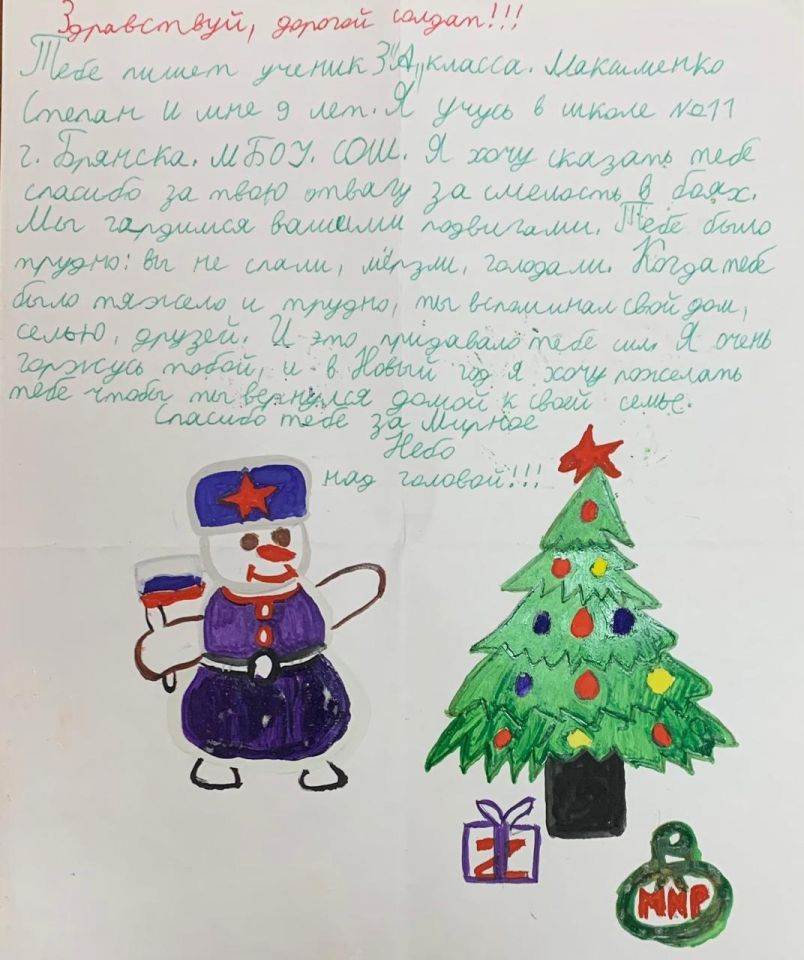 Здравствуй, дорогой солдат!!!
Тебе пишет ученик 3"А„ класса. Максименко
Степан И мне 9 лет. Я учусь в школе №11
г. Брянска. МБОУ. СОШ. Я хочу сказать тебе
спасибо за твою отвагу за смелость в боях.
Мы гардимся вашими подвигами. Тебе было
трудно: вы не спали, мёрзли, голодали. Когда тебе
было тяжело и трудно, ты вспоминал свой дом,
семью, друзей. И это придавало тебе сил. Я очень
горжусь тобой, и в Новый год я хочу пожелать
тебе чтобы ты вернулся домой к своей семье.
Спасибо тебе за Мирное
Небо
над головой!!!
Z
МИР